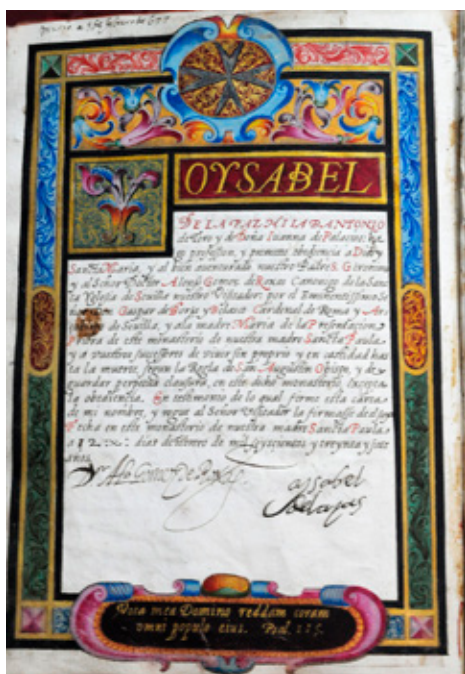 YOYSABEL
DE LA PALMA HIJA D ANTONIO
de Toro y de Doña Iuanna de Palacios: ha
go profession, y prometo obediencia a Dios y
Sancta Maria, y al bien auenturado nuestro Padre S. Geronimo
y al Señor Doctor Alonso Gomez de Roxas Canonigo de la Sanc
ta Yglesia de Seuilla nuestro Visitador; por el Eminentissimo Se
Gaspar de Borja y Velasco Cardenal de Roma y Ar
de Seuilla, y a la madre Maria de la Presentacion,
Priora de este monasterio de nuestra madre Sancta Paula,
y a vuestros successores de viuir sin proprio y en castidad has
ta la muerte, segun la Regla de San Augustin Obispo, y de
guardar perpetua clausura, en este dicho monasterio, excepta
la obediencia. En testimonio de lo qual firme esta carta
de mi nombre, y rogue al Señor Visitador la firmasse
Fecha en este monasterio de nuestra madre Sancta Paula
a dias de de mil y seyscientos y treynta y siete
años
Vota mea Domino reddam coram
omni populo eius. Psal. 115.